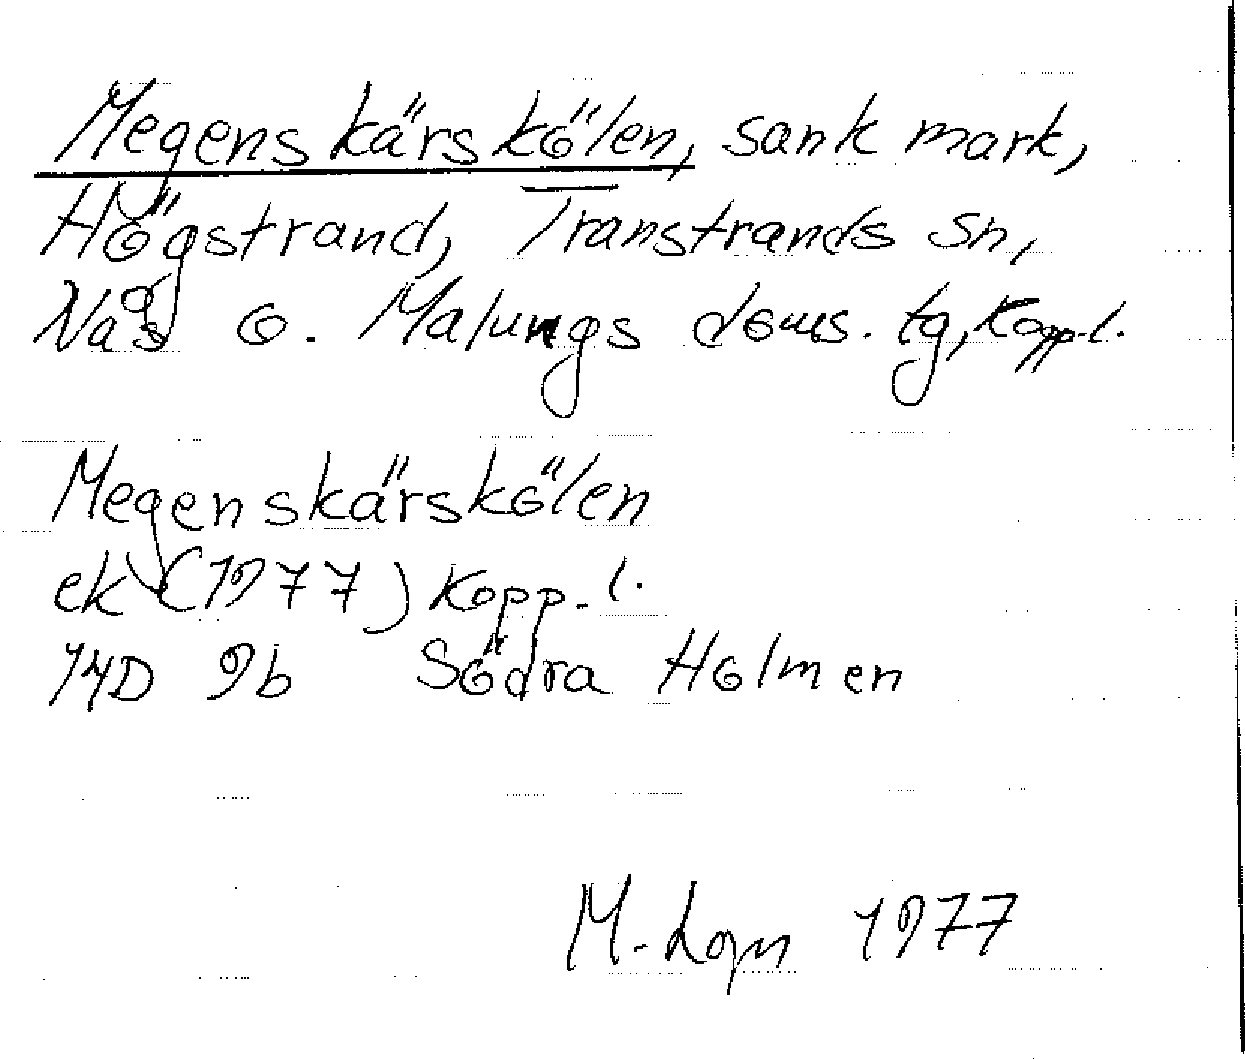 Megenskärskölen, sank mark,
Högstrand, Transtrands sn,
Nås o. Malungs doms. tg, Kopp. l.
Megenskärskölen
ek (1977) Kopp. l.
14D 9b Södra Holmen
M. 1977